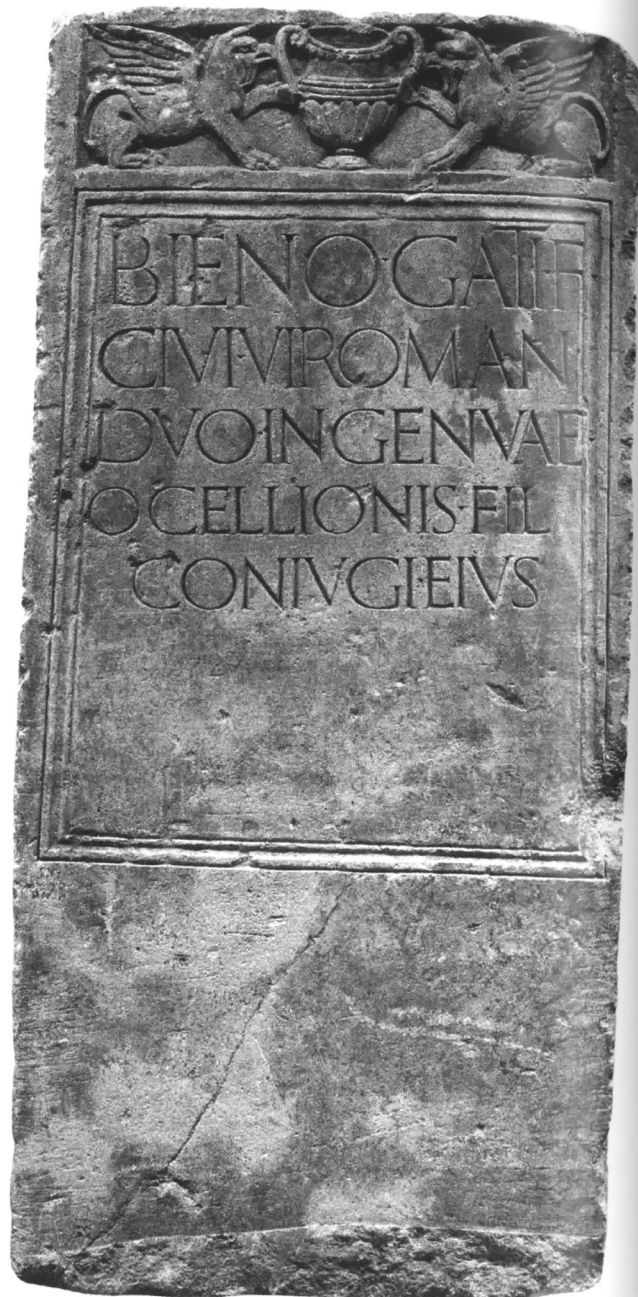 BIENO·GATI·F
CIVI·VIROMAN
DVO·INGENVAE
OCELLIONIS·FIL
CONIVGI·EIVS